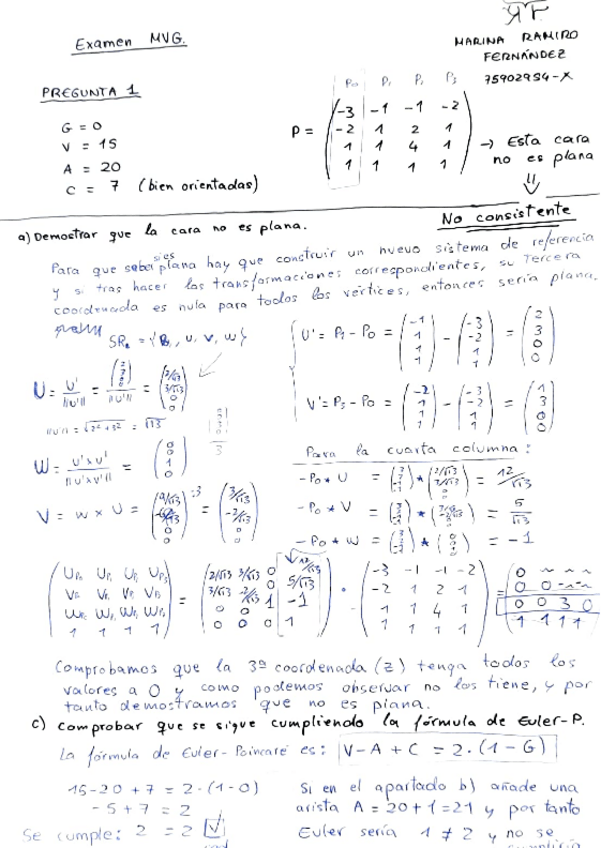 Examen MVG.
MARINA RAMIRO
FERNÁNDEZ
75902934-X
PREGUNTA 1
G = 0
V = 15
A = 20
C = 7 (bien orientadas)
P₀ P₁ P₂ P₃
P = ( -3 -1 -1 -2
-2 1 2 1
1 1 4 1
1 1 1 1 )
→ Esta cara
no es plana
⇓
No consistente
a) Demostrar que la cara no es plana.
Para que sea plana hay que construir un nuevo sistema de referencia
y si tras hacer las transformaciones correspondientes, su tercera
coordenada es nula para todos los vértices, entonces sería plana.
SR₂ = {P₀, U, V, W}
U' = P₁ - P₀ = (-1 1 1 1) - (-3 -2 1 1) = (2 3 0 0)
V' = P₃ - P₀ = (-2 1 1 1) - (-3 -2 1 1) = (1 3 0 0)
U = U' / ||U'|| = (2 3 0 0) / ||U'|| = (2/√13 3/√13 0 0)
||U'|| = √2²+3² = √13
W = U'xV' / ||U'xV'|| = (0 0 1 0)
V = W x U = (3/√13 -2/√13 0 0)
Para la cuarta columna:
-P₀ * U = 12/√13
-P₀ * V = 5/√13
-P₀ * W = -1
( 2/√13 3/√13 0 12/√13
3/√13 -2/√13 0 5/√13
0 0 1 -1
0 0 0 1 )
· ( -3 -1 -1 -2
-2 1 2 1
1 1 4 1
1 1 1 1 )
= ( 0 ~ ~ ~
0 0 ~ ~
0 0 3 0
1 1 1 1 )
Comprobamos que la 3ª coordenada (z) tenga todos los
valores a 0 y como podemos observar no los tiene, y por
tanto demostramos que no es plana.
c) Comprobar que se sigue cumpliendo la fórmula de Euler-P.
La fórmula de Euler-Poincaré es: V-A+C = 2·(1-G)
15-20+7 = 2·(1-0)
-5+7 = 2
Se cumple: 2 = 2 √
Si en el apartado b) añade una
arista A = 20+1 = 21 y por tanto
Euler sería 1 ≠ 2 y no se